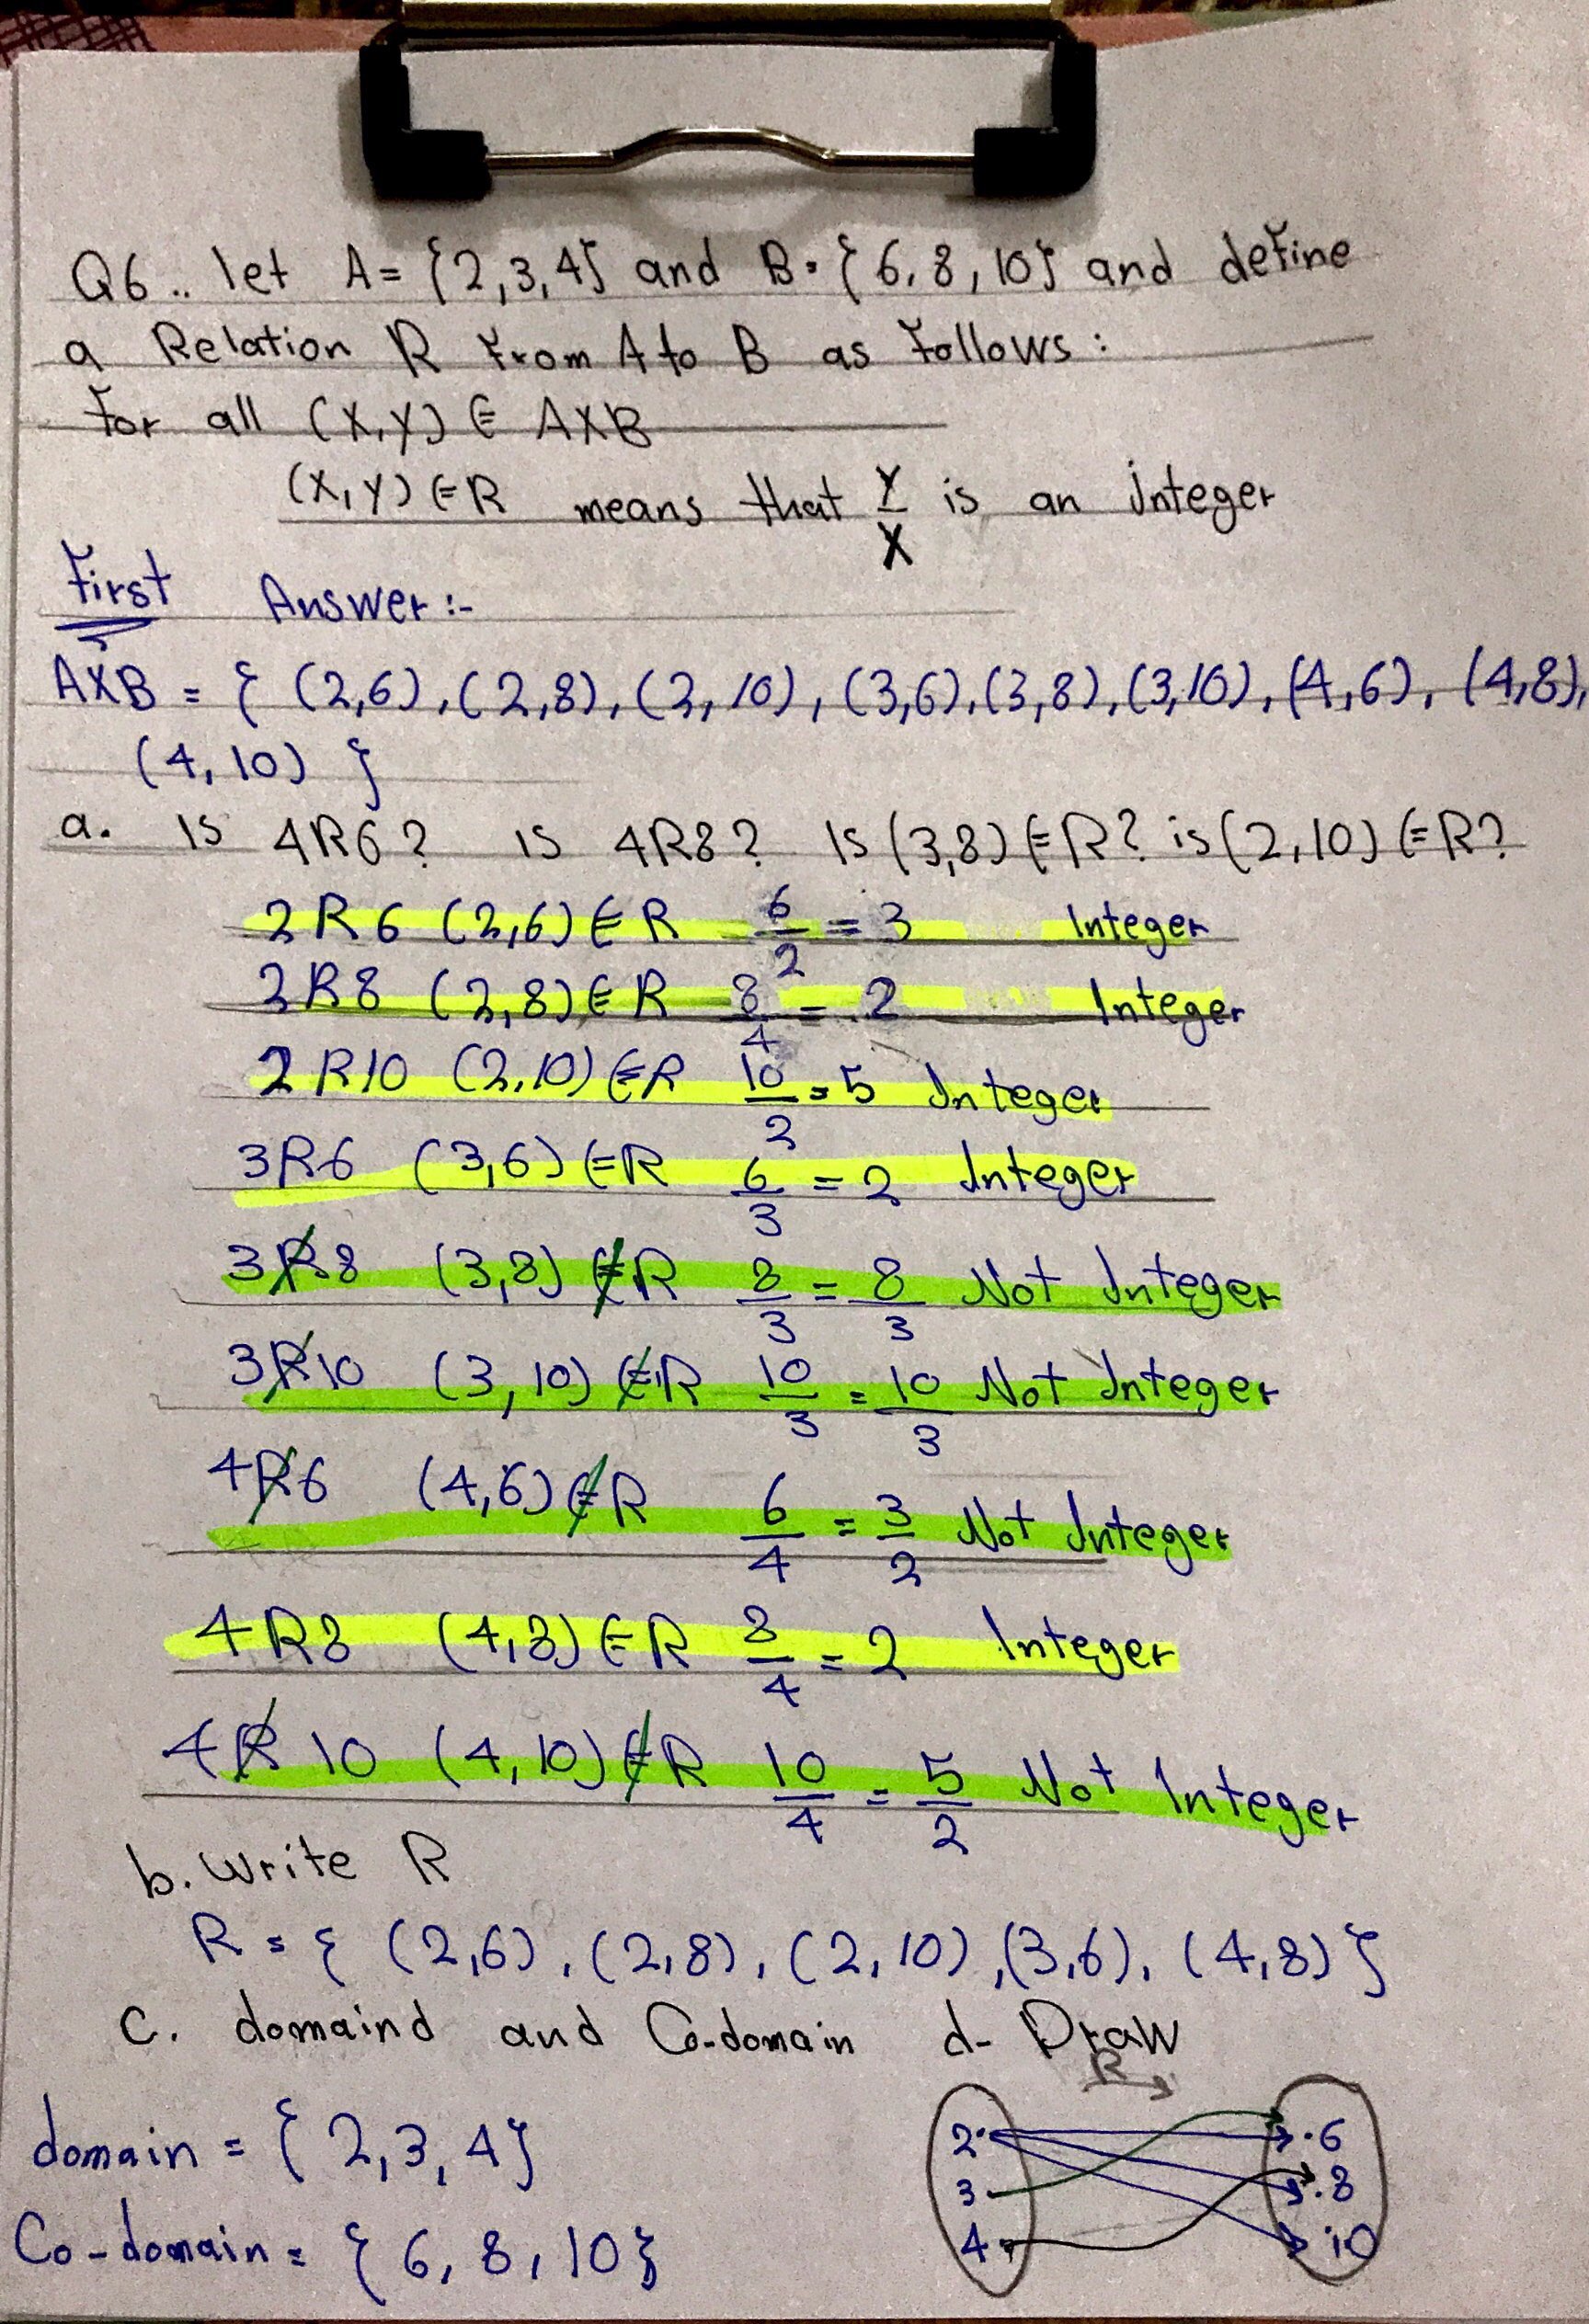 Q6.. let A= {2,3,4} and B= {6,8,10} and define
a Relation R From A to B as Follows:
For all (X,Y) ∈ AXB
(X,Y) ∈ R means that Y/X is an integer
First Answer:-
AXB = { (2,6),(2,8),(2,10),(3,6),(3,8),(3,10),(4,6),(4,8),
(4,10) }
a. Is 4R6? is 4R8? Is (3,8) ∈ R? is (2,10) ∈ R?
2R6 (2,6) ∈ R 6/2 = 3 Integer
2R8 (2,8) ∈ R 8/4 = 2 Integer
2R10 (2,10) ∈ R 10/2 = 5 Integer
3R6 (3,6) ∈ R 6/3 = 2 Integer
3R̸8 (3,8) ∉ R 8/3 = 8/3 Not Integer
3R̸10 (3,10) ∉ R 10/3 = 10/3 Not Integer
4R̸6 (4,6) ∉ R 6/4 = 3/2 Not Integer
4R8 (4,8) ∈ R 8/4 = 2 Integer
4R̸10 (4,10) ∉ R 10/4 = 5/2 Not Integer
b. Write R
R = { (2,6), (2,8), (2,10), (3,6), (4,8) }
c. domaind and Co-domain d- Draw
R
domain = { 2,3,4}
Co-domain = { 6, 8, 10}
2 6
3 8
4 10